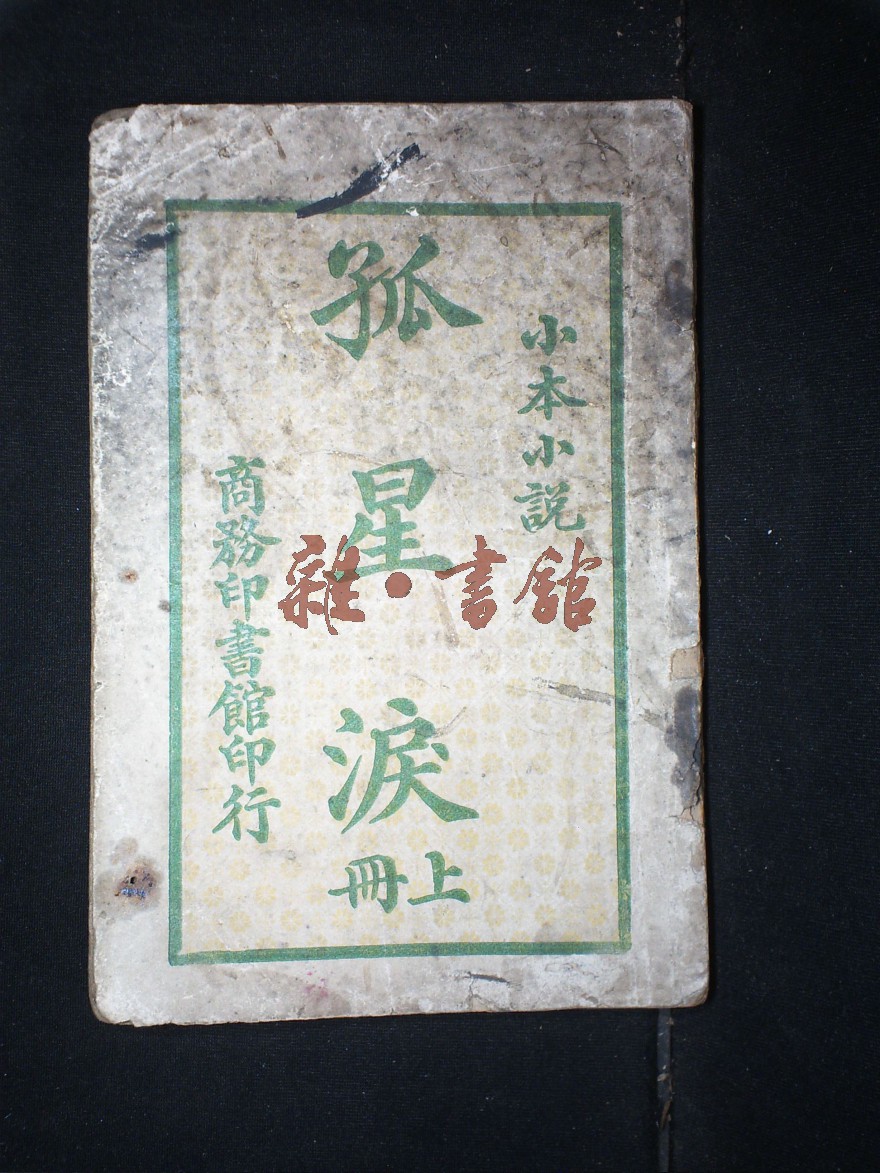 小本小説
孤星淚
上冊
商務印書館印行
雜·書館